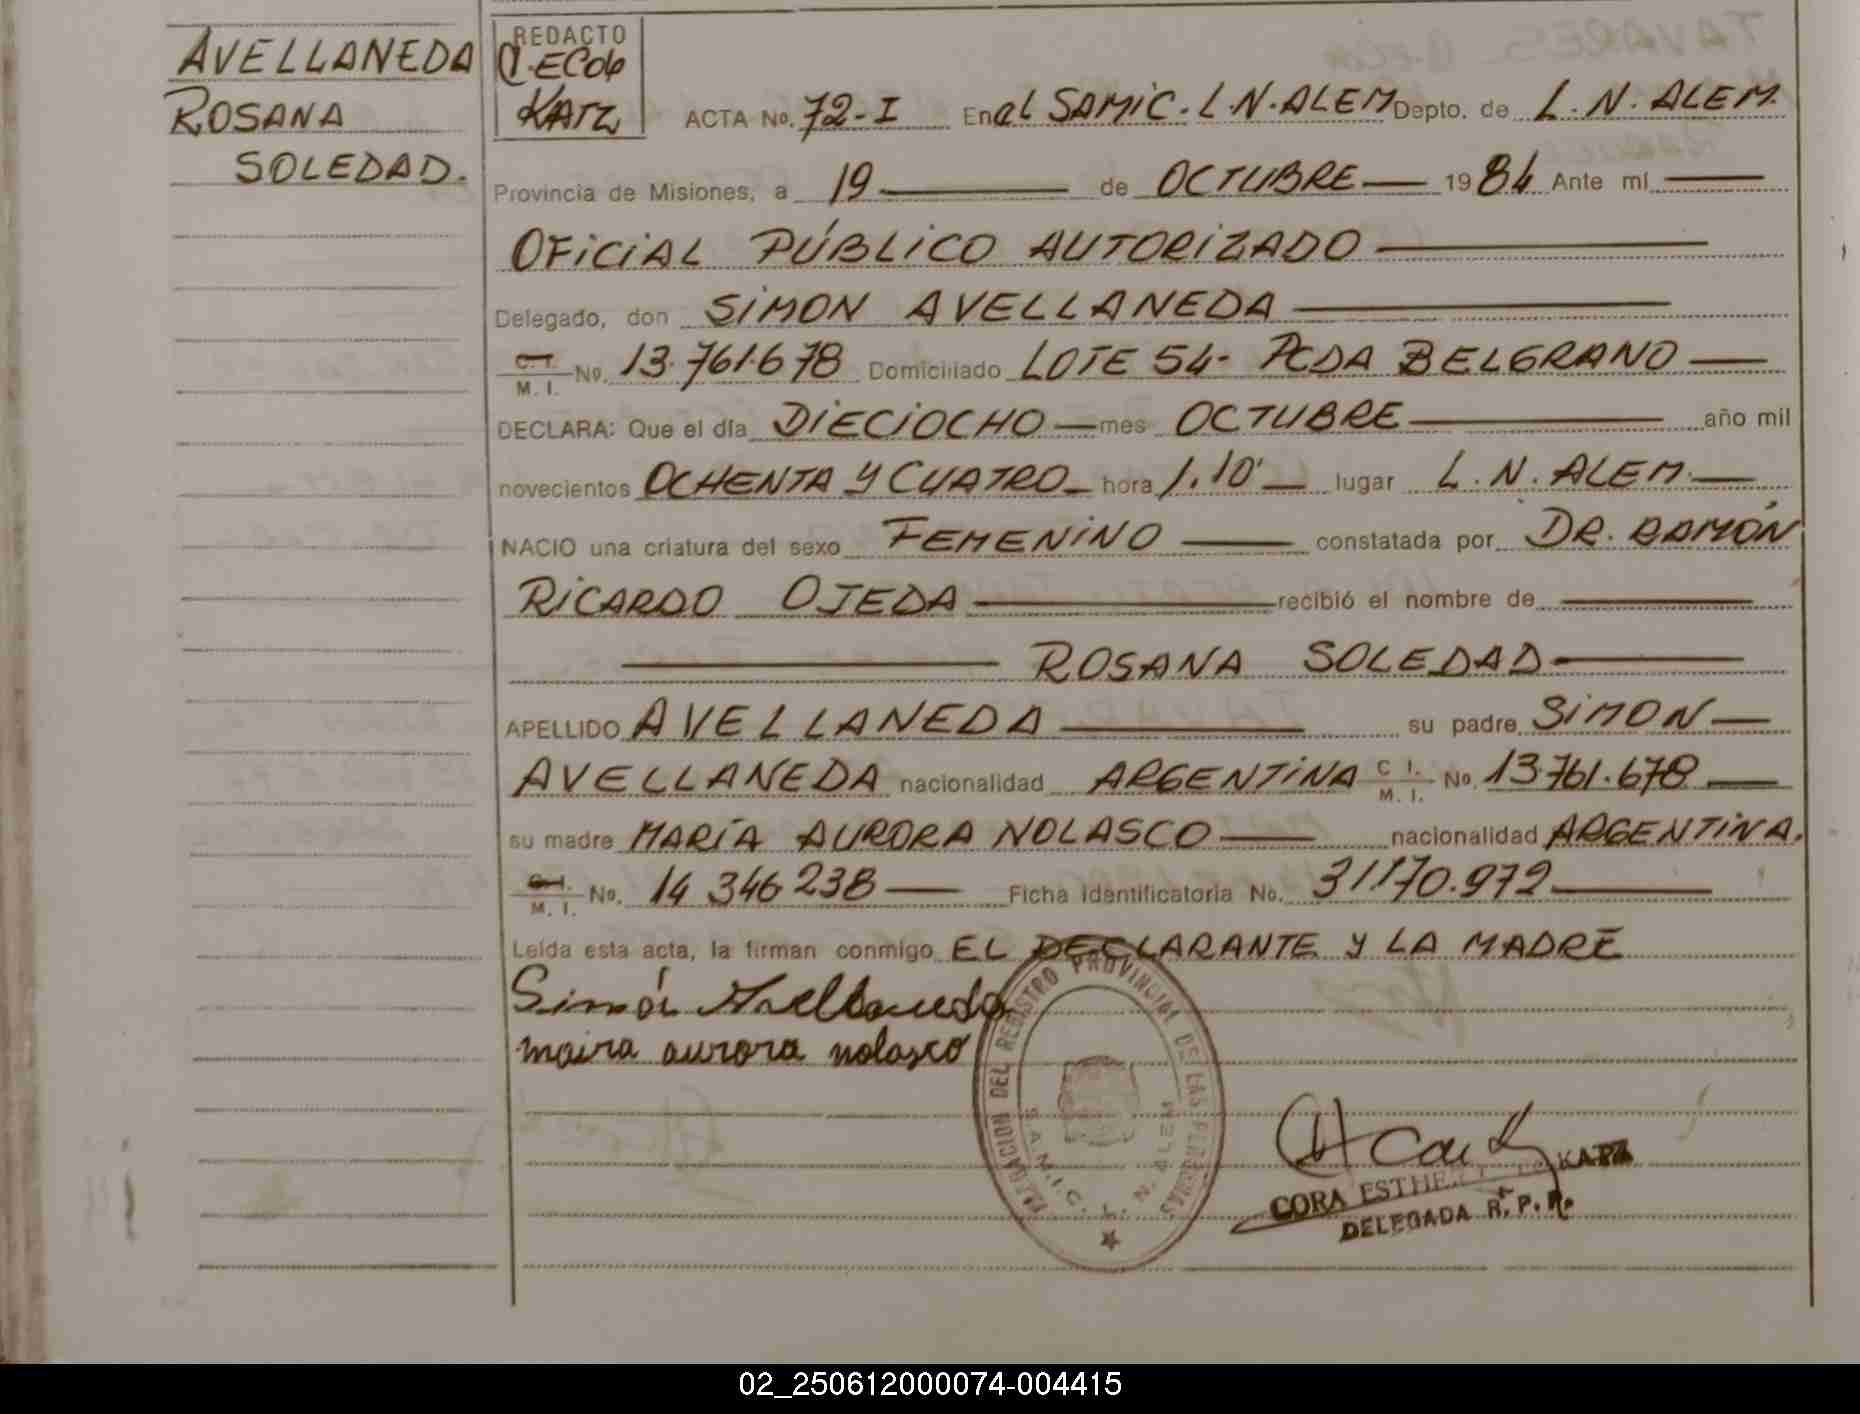 AVELLANEDA
ROSANA
SOLEDAD.
REDACTO
KATZ
ACTA No. 72-I En el SAMIC. L.N. ALEM Depto. de L. N. ALEM.
Provincia de Misiones, a 19 de OCTUBRE 1984 Ante mí
OFICIAL PÚBLICO AUTORIZADO
Delegado, don SIMON AVELLANEDA
C. I. M. I. No. 13.761.678 Domiciliado LOTE 54- PCDA BELGRANO
DECLARA: Que el día DIECIOCHO mes OCTUBRE año mil
novecientos OCHENTA Y CUATRO hora 1.10' lugar L. N. ALEM.
NACIO una criatura del sexo FEMENINO constatada por DR. RAMÓN
RICARDO OJEDA recibió el nombre de
ROSANA SOLEDAD
APELLIDO AVELLANEDA su padre SIMON
AVELLANEDA nacionalidad ARGENTINA C I. M. I. No. 13.761.678
su madre MARÍA AURORA NOLASCO nacionalidad ARGENTINA.
C. I. M. I. No. 14 346 238 Ficha Identificatoria No. 31170.972
Leída esta acta, la firman conmigo EL DECLARANTE Y LA MADRE
Simón Avellaneda
maira aurora nolasco
DELEGACION DEL REGISTRO PROVINCIAL DE LAS PERSONAS
S.A.M.I.C. L. N. ALEM
CORA ESTHER KATZ
DELEGADA R. P. P.
02_250612000074-004415